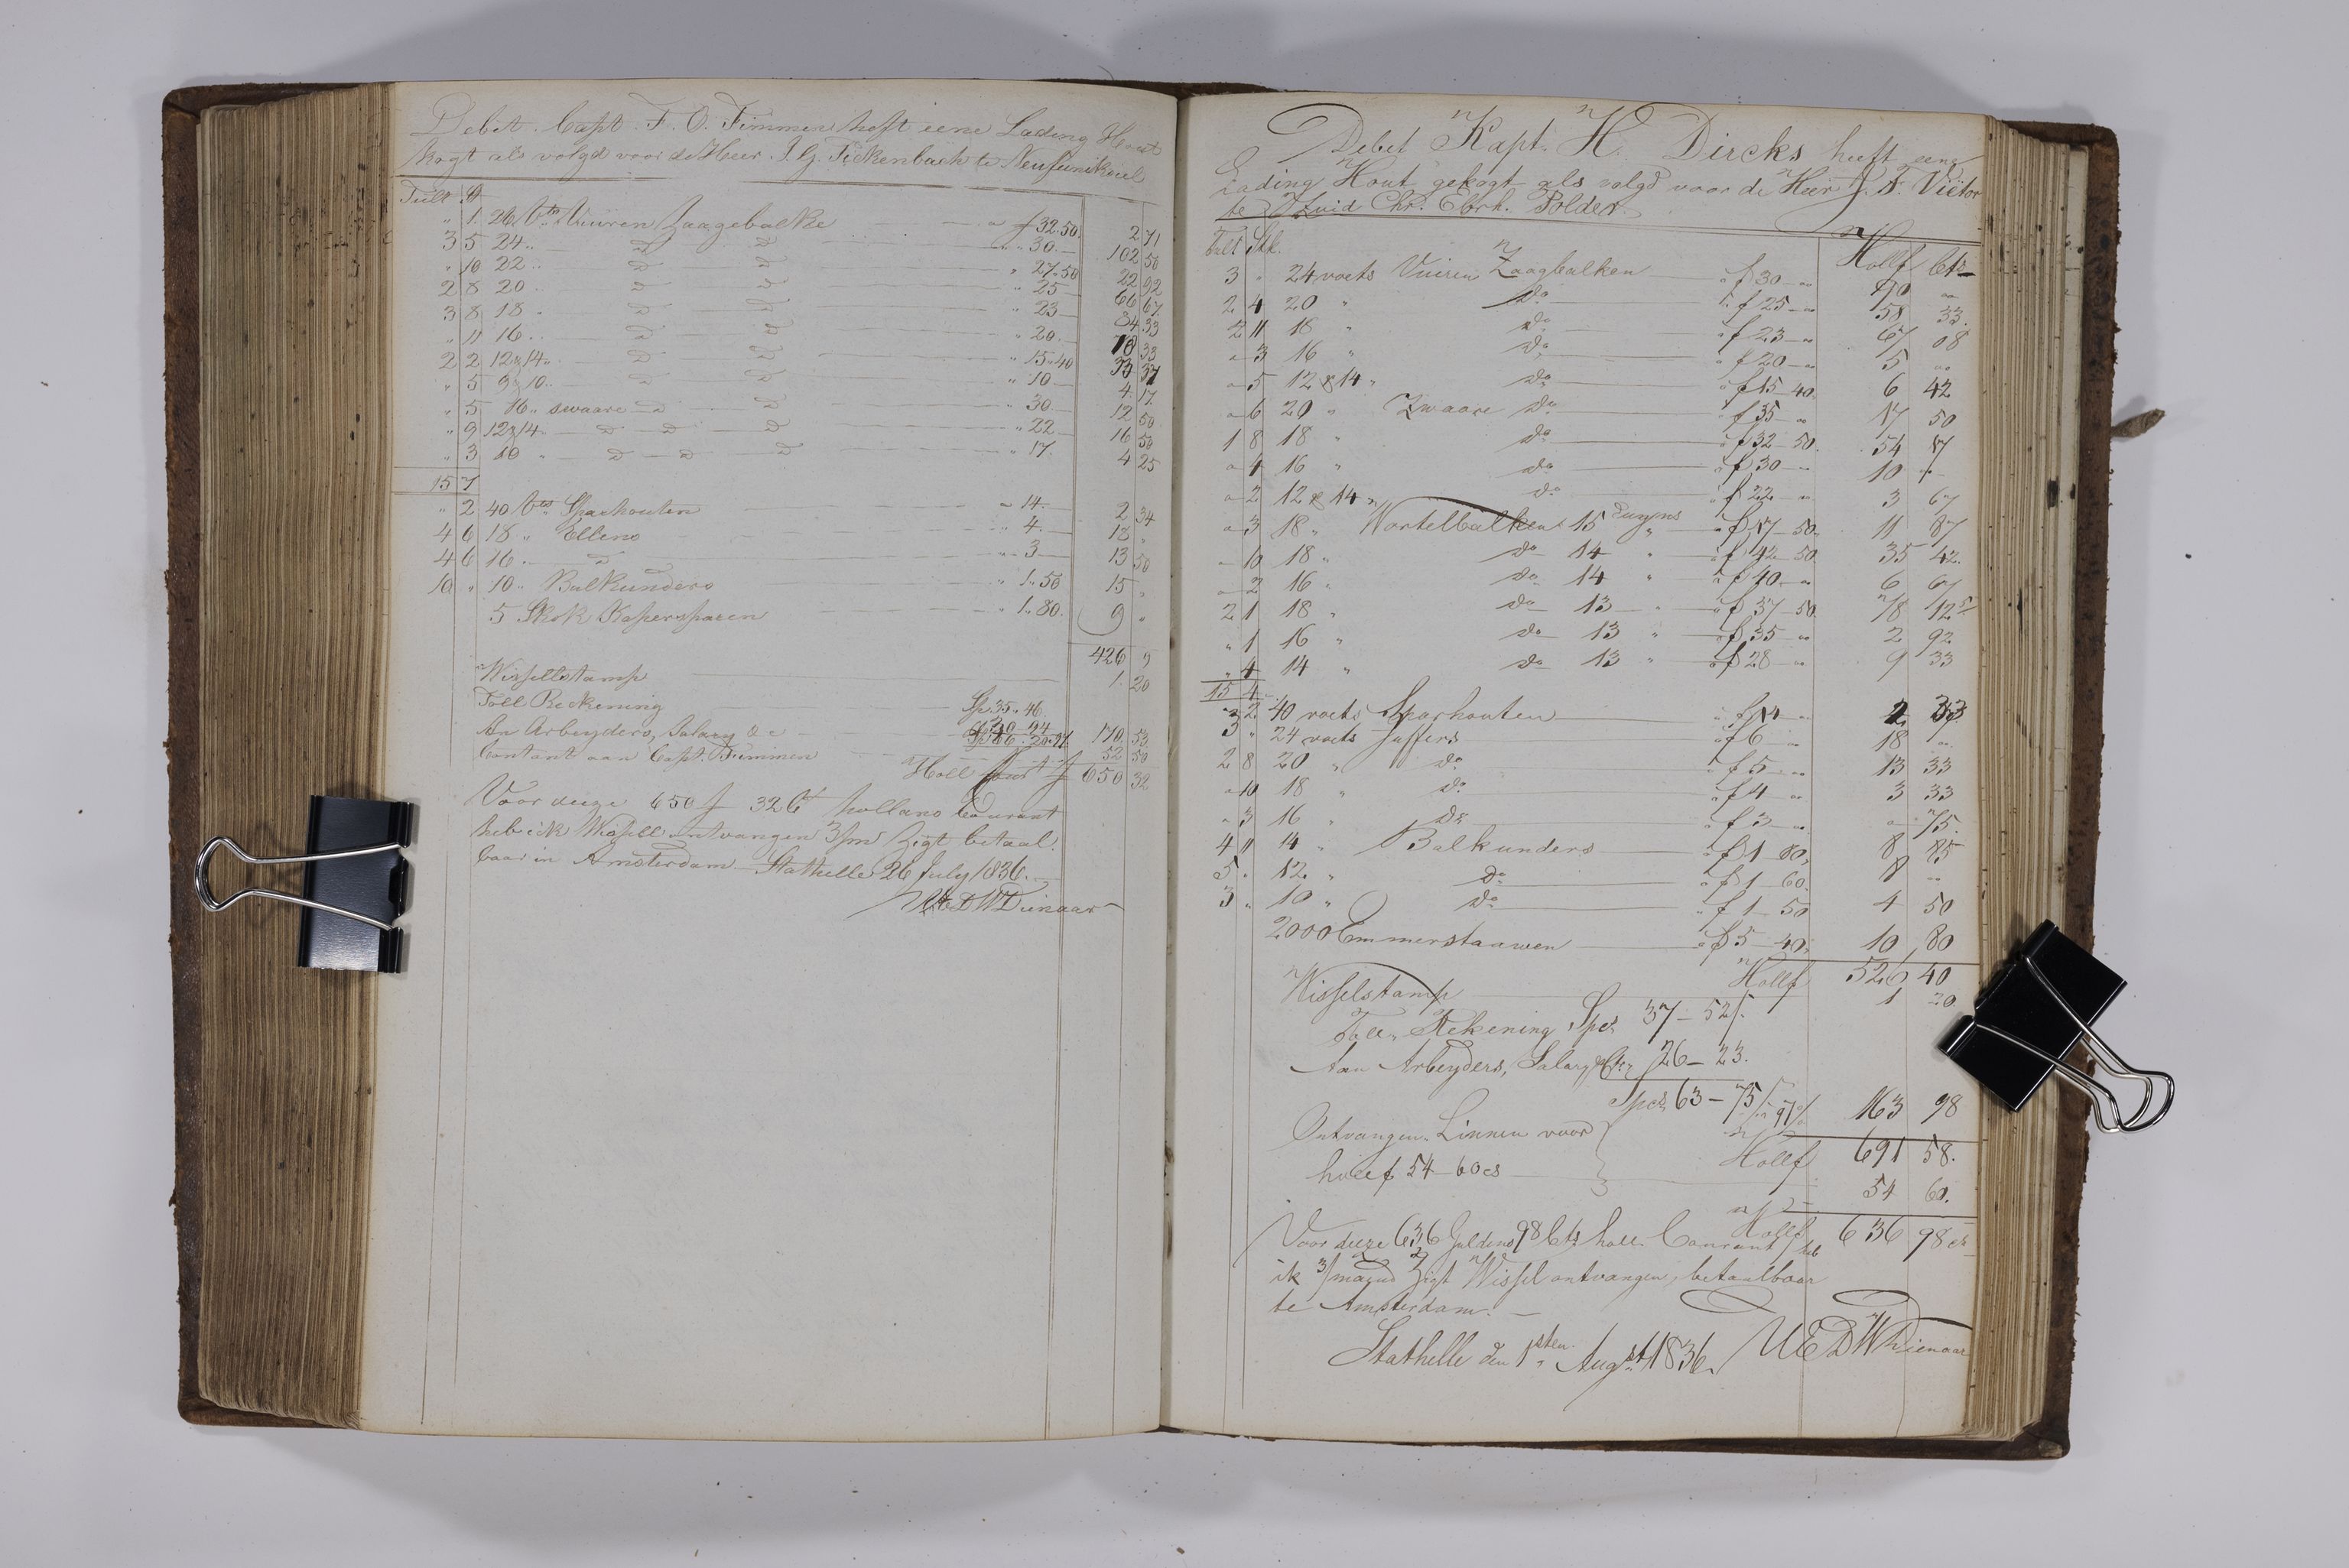 Debet Capt. F. O. Fimmen heft eene Lading Hout
kogt als volgd voor de Heer J. G. Fickenbach te
Tult
" 1 26 Vts Vuuren Zaagebalke " f 32.50 2 71
3 5 24 " D D " 30 102 50
" 10 22 " D D " 27.50 22 92
2 8 20 " D D " 25 66 67
3 8 18 " D D " 23 84 33
" 11 16 " D D " 20 18 33
2 2 12 & 14 " D D " 15.40 33 37
" 5 9 & 10 " D D " 10 4 17
" 5 16 " swaare D D " 30 12 50
" 9 12 & 14 " D D D " 22 16 50
" 3 10 " D D D " 17 4 25
15 7
" 2 40 Vts Sparhouten " 14 2 34
4 6 18 " Ellens " 4 18 "
4 6 16 " D " 3 13 50
10 " 10 " Balkunders " 1.50 15 "
5 Shok Kapersparen " 1.80 9 "
426 9
Wisselstamp 1 20
Toll Reckening Sp. 35.46
An Arbeyders, Salary & c 170 53
Contant aan Capt. Fimmen 52 50
Holl Court f 650 32
Voor deeze 650 f 32 Ct hollans Courant
heb ick Wissell ontvangen 3/m Zigt betaal
baar in Amsterdam Stathelle 26 July 1836.
UEDWDienaar
Debet Kapt. H. Dircks heeft eene
Lading Hout gekogt als volgd voor de Heer J. F. Victor
te Zuid Chr. Ebrh. Polder
Tult Stk. Hollf Cts
3 " 24 voets Vuiren Zaagbalken " f 30 " 90 "
2 4 20 " do " f 25 " 58 33
2 11 18 " do " f 23 " 67 08
" 3 16 " do " f 20 " 5 "
" 5 12 & 14 " do " f 15 40 6 42
" 6 20 " Zwaare do " f 35 " 17 50
1 8 18 " do " f 32 50 54 17
" 4 16 " do " f 30 " 10 "
" 2 12 & 14 " do " f 22 " 3 67
" 3 18 " Wortelbalken 15 Duyms " f 47 50 11 87
" 10 18 " do 14 " " f 42 50 35 42
" 2 16 " do 14 " " f 40 " 6 67
2 1 18 " do 13 " " f 37 50 78 12
" 1 16 " do 13 " " f 35 " 2 92
" 4 14 " do 13 " " f 28 " 9 33
15 4
" 2 40 voets Sparhouten " f 14 " 2 33
3 " 24 voets Juffers " f 6 " 18 "
2 8 20 " do " f 5 " 13 33
" 10 18 " do " f 4 " 3 33
" 3 16 " do " f 3 " " 75
4 11 14 " Balkunders " f 1 80 8 85
5 " 12 " do " f 1 60 8 "
3 " 10 " do " f 1 50 4 50
2000 Emmerstaawen " f 5 40 10 80
Hollf 526 40
Wisselstamp 1 20
Toll Rekening Spcs 37 - 52
Aan Arbeyders, Salary &c 26 - 23.
Spcs 63 - 75 163 98
Hollf 691 58.
Ontvangen Linnen voor
54 60 cs 54 60.
Hollf 636 98 cts
Voor deeze 636 Guldens 98 Cts holl. Courant heb
ik 3/maand Zigt Wissel ontvangen, betaalbaar
te Amsterdam. —
Stathelle den 1sten Augst 1836. UEDWDienaar